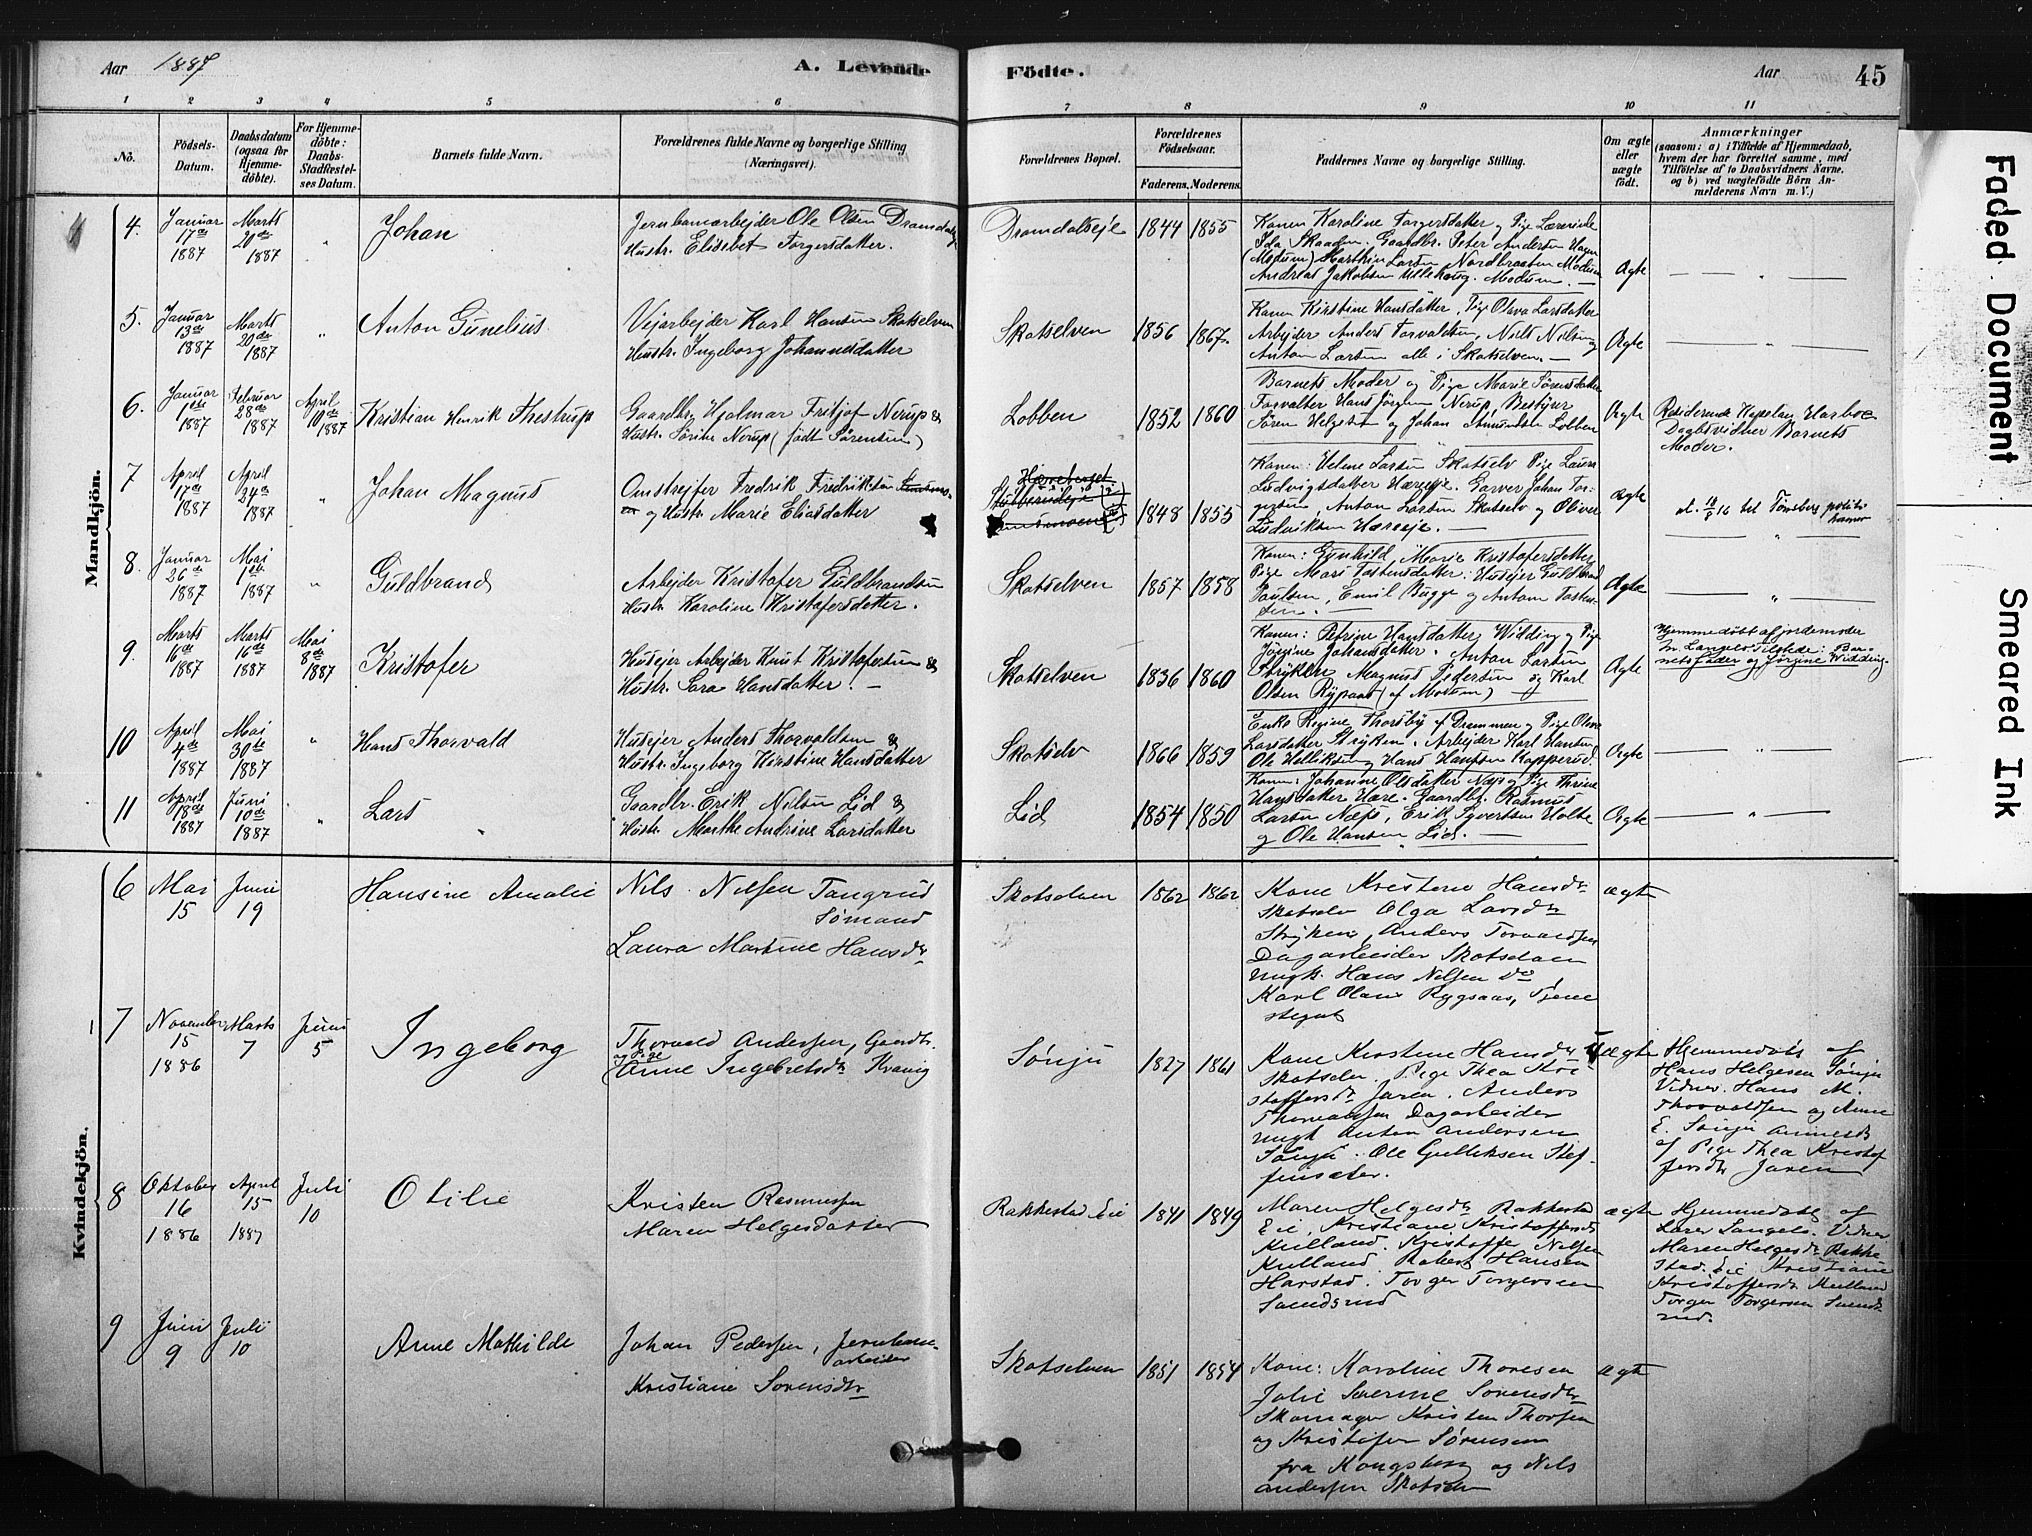 Aar 1887 A. Levende Födte. Aar 45
1 2 3 4 5 6 7 8 9 10 11
No. Födsels-Datum. Daabsdatum (ogsaa for Hjemme-döbte). For Hjemme-döbte: Daabs-Stadfæstel-ses Datum. Barnets fulde Navn. Forældrenes fulde Navne og borgerlige Stilling (Næringsvei). Forældrenes Bopæl. Forældrenes Födselsaar. Faderens. Moderens. Faddernes Navne og borgerlige Stilling. Om ægte eller uægte födt. Anmærkninger (saasom: a) i Tilfælde af Hjemmedaab, hvem der har forrettet samme, med Tilföielse af to Daabsvidners Navne, og b) ved uægtefödte Börn An-melderens Navn m. V.)
Mandkjön.
4. Januar 17de 1887 Marts 20de 1887 " Johan
Jernbanearbejder Ole Olsen Dramdalsej
Hustr. Elisebet Torgersdatter.
Dramdalseje 1844 1855
Konen Karoline Torgersdatter, Pige Lærerinde
Ida Skaaden. Gaardbr. Peter Andersen Hagen
(Modum) Marthin Larsen Nordbraaten Modum
Andreas Jakobsen Ullehaug. Modum. —
Ægte — " —
5. Januar 13de 1887 Marts 20de 1887 " Anton Gunelius
Vejarbejder Karl Hansen Skotselven
Hustr. Ingeborg Johannesdatter
Skotselven 1856 1867.
Konen Kirstine Hansdatter, Pige Olava Larsdatter
Arbejder Anders Torvaldsen, Nils Nilsen og
Anton Larsen alle i Skotselven. —
Ægte — " —
6. Januar 1ste 1887 Februar 28de 1887 April 10de 1887 Kristian Henrik Thestrup
Gaardbr. Hjalmar Fritjof Nerup &
Hustr. Sørine Nerup (født Sørensen)
Lobben 1852 1860
Barnets Moder og Pige Marie Sørensdatter
Forvalter Hans Jørgen Nerup, Bestyrer
Søren Helgesen og Johan Amundsen Lobben
Ægte
Residerende Kapellan Harboe
Daabsvidner Barnets
Moder.
7 April 17de 1887 April 24de 1887 " Johan Magnus
Omstrejfer Fredrik Fredriksen
og Hustr. Marie Eliasdatter
1848 1855
Konen: Helene Larsen Skotselv Pige Laura
Ludvigsdatter Hæreeje. Garver Johan Tor-
gersen, Anton Larsen Skotselv og Oliver
Ludviksen Hæreeje. —
Ægte
— " —
8. Januar 26de 1887 Mai 1ste 1887 " Guldbrand
Arbejder Kristofer Guldbrandsen
Hustr. Karoline Kristofersdatter.
Skotselven 1857 1858
Konen: Gunhild Marie Kristofersdatter
Pige Mari Tostensdatter: Husejer Guldbrand
Paulsen, Emil Bugge og Anton Tosten-
sen. —
Ægte — " —
9. Marts 16de 1887 Marts 16de 1887 Mai 8de 1887 Kristofer
Husejer Arbejder Knut Kristofersen &
Hustr. Sara Hansdatter. —
Skotselven 1836 1860
Konen: Petrine Hansdatter Widding og Pige
Jørgine Johansdatter. Anton Larsen
Strykken Magnus Pedersen og Karl
Olsen Rypaas (af Modum) —
Ægte
Hjemmedøbt af jordemoder
M. Langelo Tilstede: Bar-
nets fader og Jørgine Widding.
10 April 4de 1887 Mai 30de 1887 " Hans Thorvald
Husejer Anders Thorvaldsen &
Hustr. Ingeborg Kirstine Hansdatter
Skotselv 1866 1859
Enke Regine Thorsby af Drammen, Pige Olava
Larsdatter Stryken. Arbejder Karl Hansen
Ole Helliksen og Hans Hansen Kopperud
Ægte — " —
11 April 18de 1887 Juni 10de 1887 " Lars
Gaardbr. Erik Nilsen Lid &
Hustr. Marthe Andrine Larsdatter
Lid 1854 1850
Konen: Johanne Olsdatter Næs og Pige Thrine
Hansdatter Hære. Gaardbr. Rasmus
Larsen Næss, Erik Syvertsen Holte
og Ole Hansen Lid. —
Ægte — " —
Kvindekjön.
6 Mai 15 Juni 19 Hansine Amalie
Nils Nilsen Tangrud
Sømand
Laura Martine Hansdtr
Skotselven 1862 1862
Kone Kristene Hansdtr
Skotselv Olga Larsdtr
Stryken, Anders Torvaldsen
Dagarbeider Skotselven
ungk. Hans Nilsen do
Karl Olaus Rygsaas, Tjene
stegut
ægte
7 November 15 1886 Marts 7 Juni 5 Ingeborg
Thorvald Andersen, Gaardbr.
og Pige
Anne Ingebretsdtr Kravig
Sønju 1827 1861
Kone Kirstene Hansdtr
Skotselv. Pige Thea Kri
stoffersdtr Jaren. Anders
Thorvaldsen Dagarbeider
ungk Anton Andersen
Sønju. Ole Gulliksen Stef-
fensæter.
Uægte
Hjemmedøbt af
Hans Helgesen Sønju
Vidner. Hans M.
Thorvaldsen og Anne
E. Sønju anmeldt
af Pige Thea Kristof
fersdtr Jaren
8 Oktober 16 1886 April 15 1887 Juli 10 Otilie
Kristen Rasmussen
Maren Helgesdatter
Rakkestad Eie 1841 1849
Maren Helgesdtr Rakkestad
Eie, Kristiane Kristoffersdtr
Kulland. Kristoffe Nilsen
Kulland. Robert Hansen
Harstad. Torger Torgersen
Svendsrud
ægte
Hjemmedøbt af
Lærer Langelo. Vidner
Maren Helgesdtr Rakke
stad Eie Kristiane
Kristoffersdtr Kulland
Torger Torgersen Svends
rud.
9 Juni 9 Juli 10 Anne Mathilde
Johan Pedersen, Jernbane-
arbeider
Kristiane Sorensdtr
Skotselven 1851 1854
Kone: Karoline Thoresen
Jolie Severine Sorensdtr
Skomager Kristen Thorsen
og Kristofer Sørensen
fra Kongsberg og Nils
Andersen Skotselv
ægte
Faded Document Smeared Ink